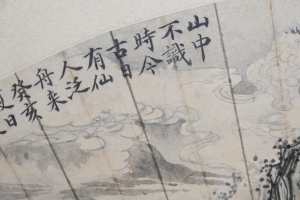 山中
不識
時今
古日
有仙
人泛
舟来
癸亥
夏日